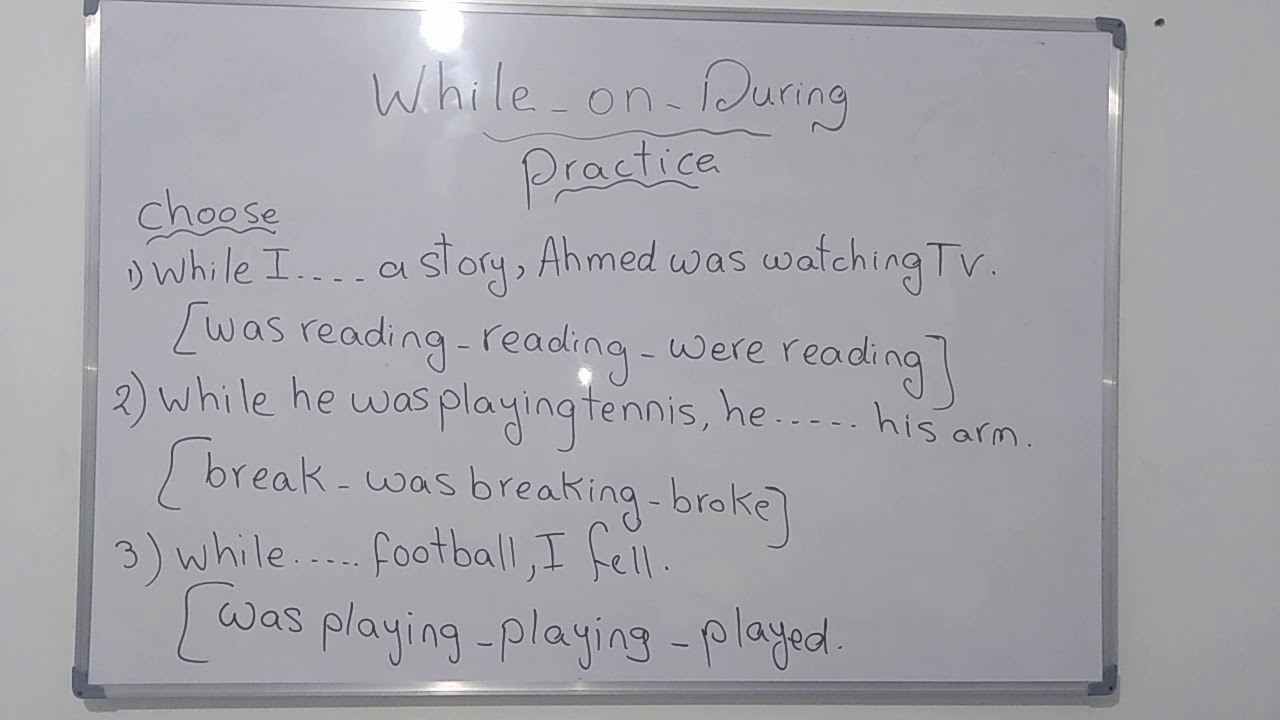 While - on - During
practice
choose
1) while I.... a story, Ahmed was watching TV.
[was reading - reading - were reading]
2) while he was playing tennis, he ..... his arm.
[break - was breaking - broke]
3) while ..... football, I fell.
[was playing - playing - played.